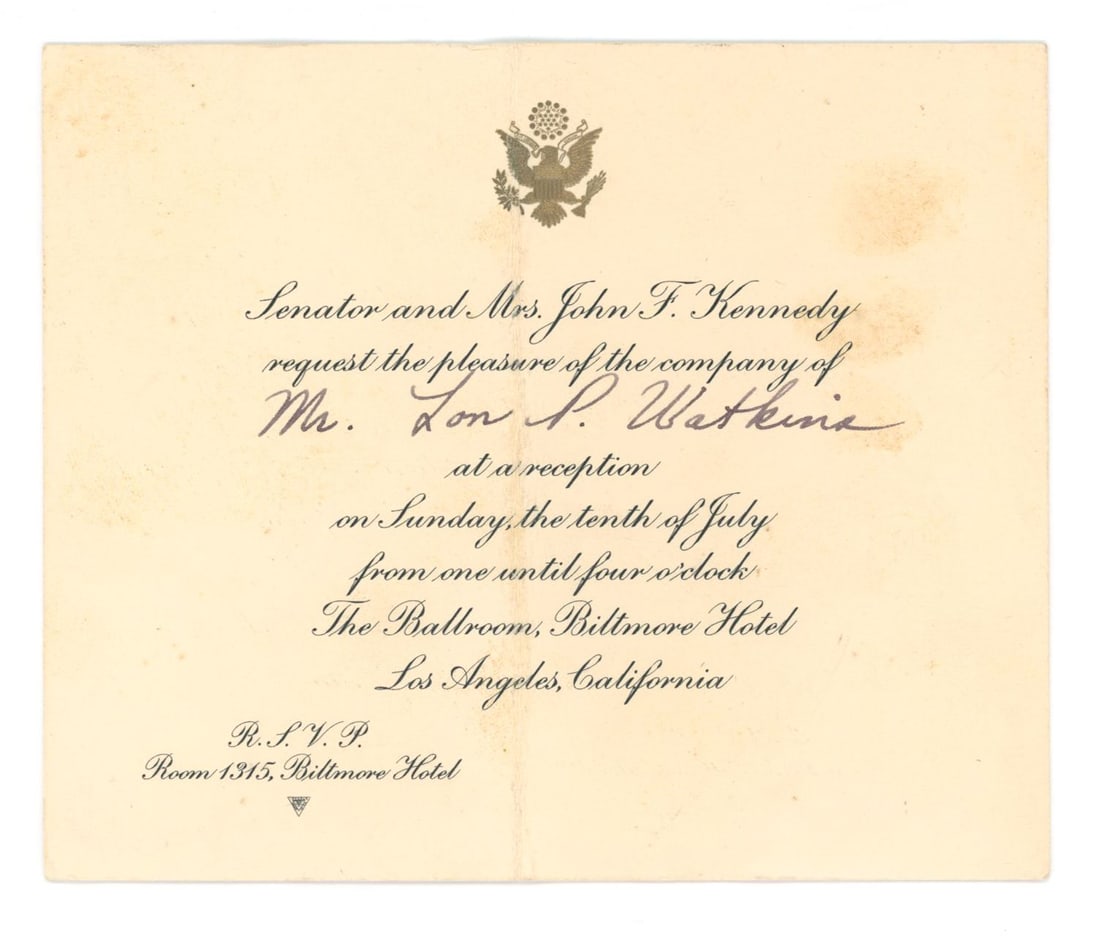 Senator and Mrs. John F. Kennedy
request the pleasure of the company of
Mr. Lon P. Watkins
at a reception
on Sunday, the tenth of July
from one until four o'clock
The Ballroom, Biltmore Hotel
Los Angeles, California
R. S. V. P.
Room 1315, Biltmore Hotel